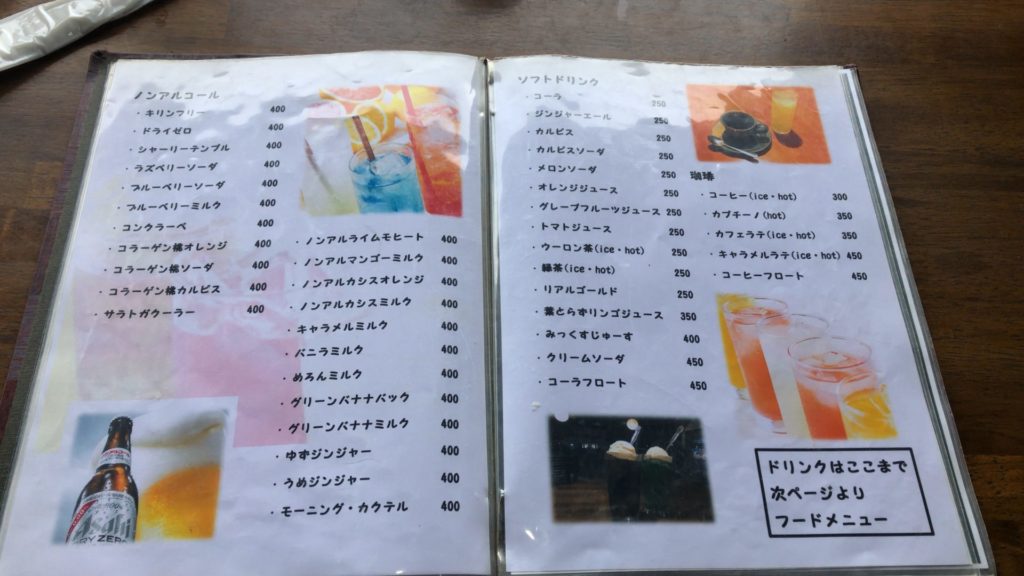 ノンアルコール
・キリンフリー 400
・ドライゼロ 400
・シャーリーテンプル 400
・ラズベリーソーダ 400
・ブルーベリーソーダ 400
・ブルーベリーミルク 400
・コンクラーベ 400
・コラーゲン桃オレンジ 400
・コラーゲン桃ソーダ 400
・コラーゲン桃カルピス 400
・サラトガクーラー 400
・ノンアルライムモヒート 400
・ノンアルマンゴーミルク 400
・ノンアルカシスオレンジ 400
・ノンアルカシスミルク 400
・キャラメルミルク 400
・バニラミルク 400
・めろんミルク 400
・グリーンバナナパック 400
・グリーンバナナミルク 400
・ゆずジンジャー 400
・うめジンジャー 400
・モーニング・カクテル 400
Asahi
DRY ZERO
ソフトドリンク
・コーラ 250
・ジンジャーエール 250
・カルピス 250
・カルピスソーダ 250
・メロンソーダ 250
・オレンジジュース 250
・グレープフルーツジュース 250
・トマトジュース 250
・ウーロン茶(ice・hot) 250
・緑茶(ice・hot) 250
・リアルゴールド 250
・葉とらずリンゴジュース 350
・みっくすじゅーす 400
・クリームソーダ 450
・コーラフロート 450
珈琲
・コーヒー(ice・hot) 300
・カプチーノ(hot) 350
・カフェラテ(ice・hot) 350
・キャラメルラテ(ice・hot) 450
・コーヒーフロート 450
ドリンクはここまで
次ページより
フードメニュー